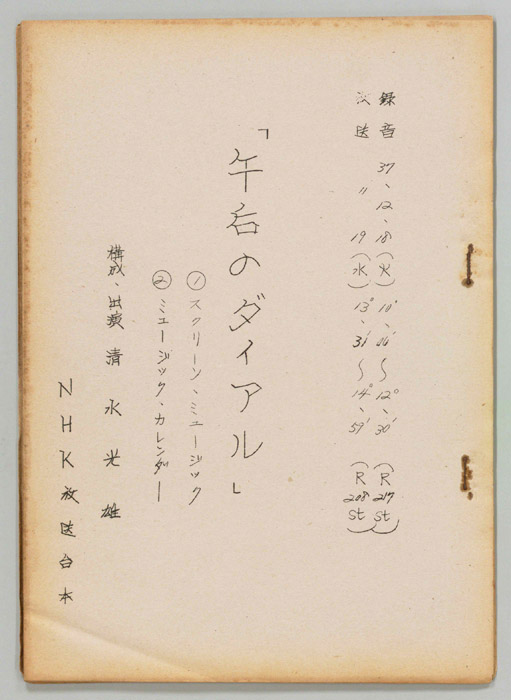 録音 37、12、18(火) 10°、00′〜12°、30′ (R 217 st)
放送 〃 19(水) 13°、31′〜14°、59′ (R 208 st)
「午后のダイアル」
① スクリーン、ミュージック
② ミュージック、カレンダー
構成、出演 清水光雄
NHK放送台本